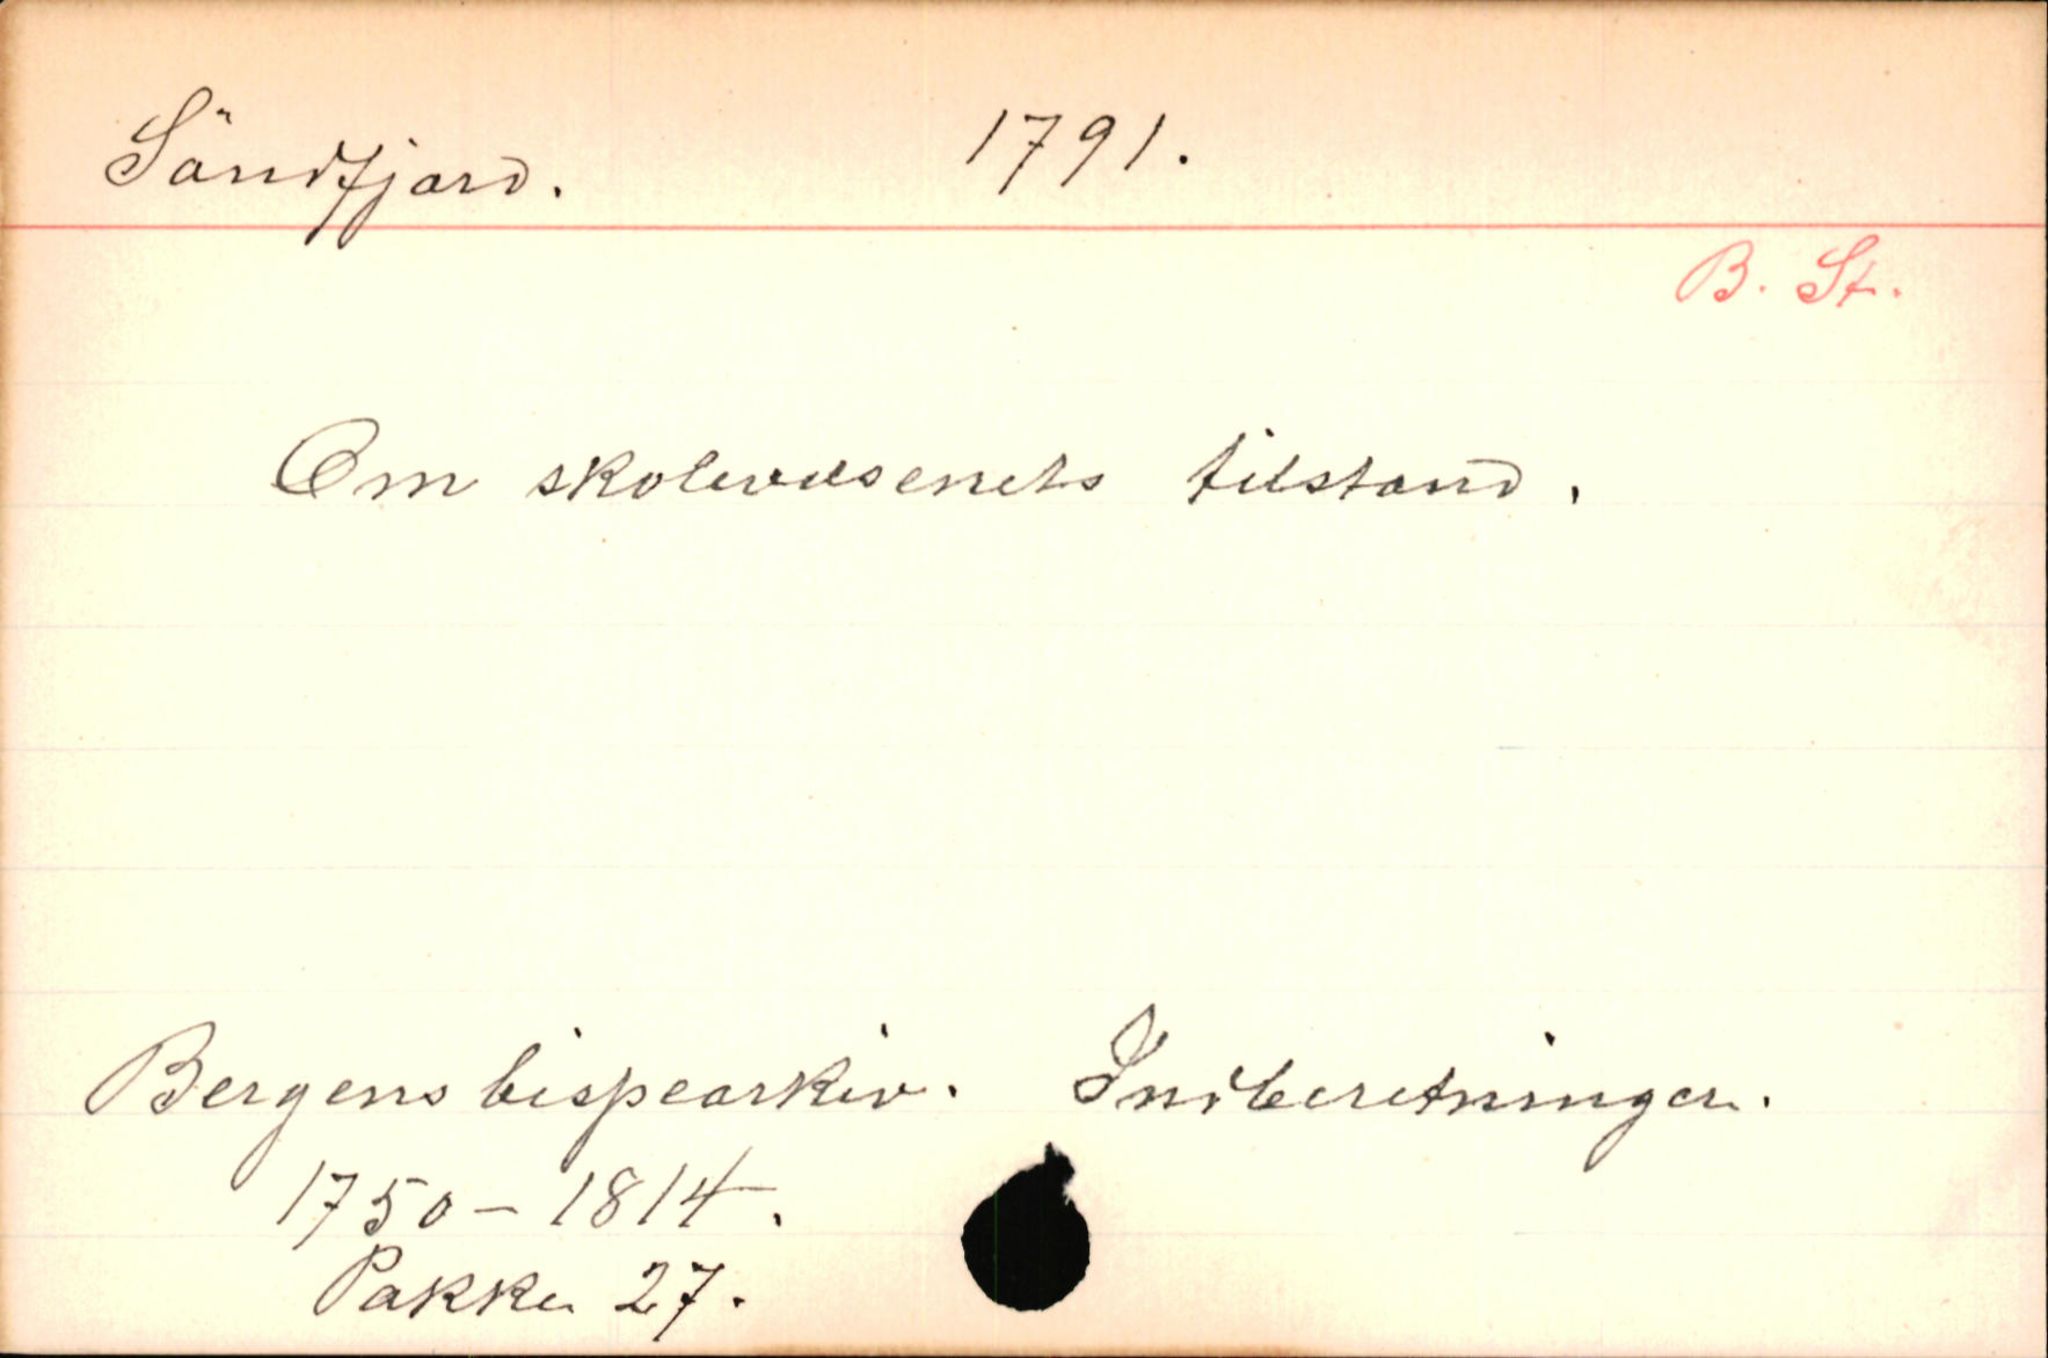 Söndfjord. 1791.
B. St.
Om skolevæsenets tilstand.
Bergens bispearkiv. Indberetninger.
1750-1814.
Pakke 27.